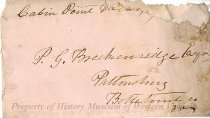 Cabin Point Va
P. G. Breckenridge Esqr
Pattonsburg
Bottetourt co
Property of History Museum of Western